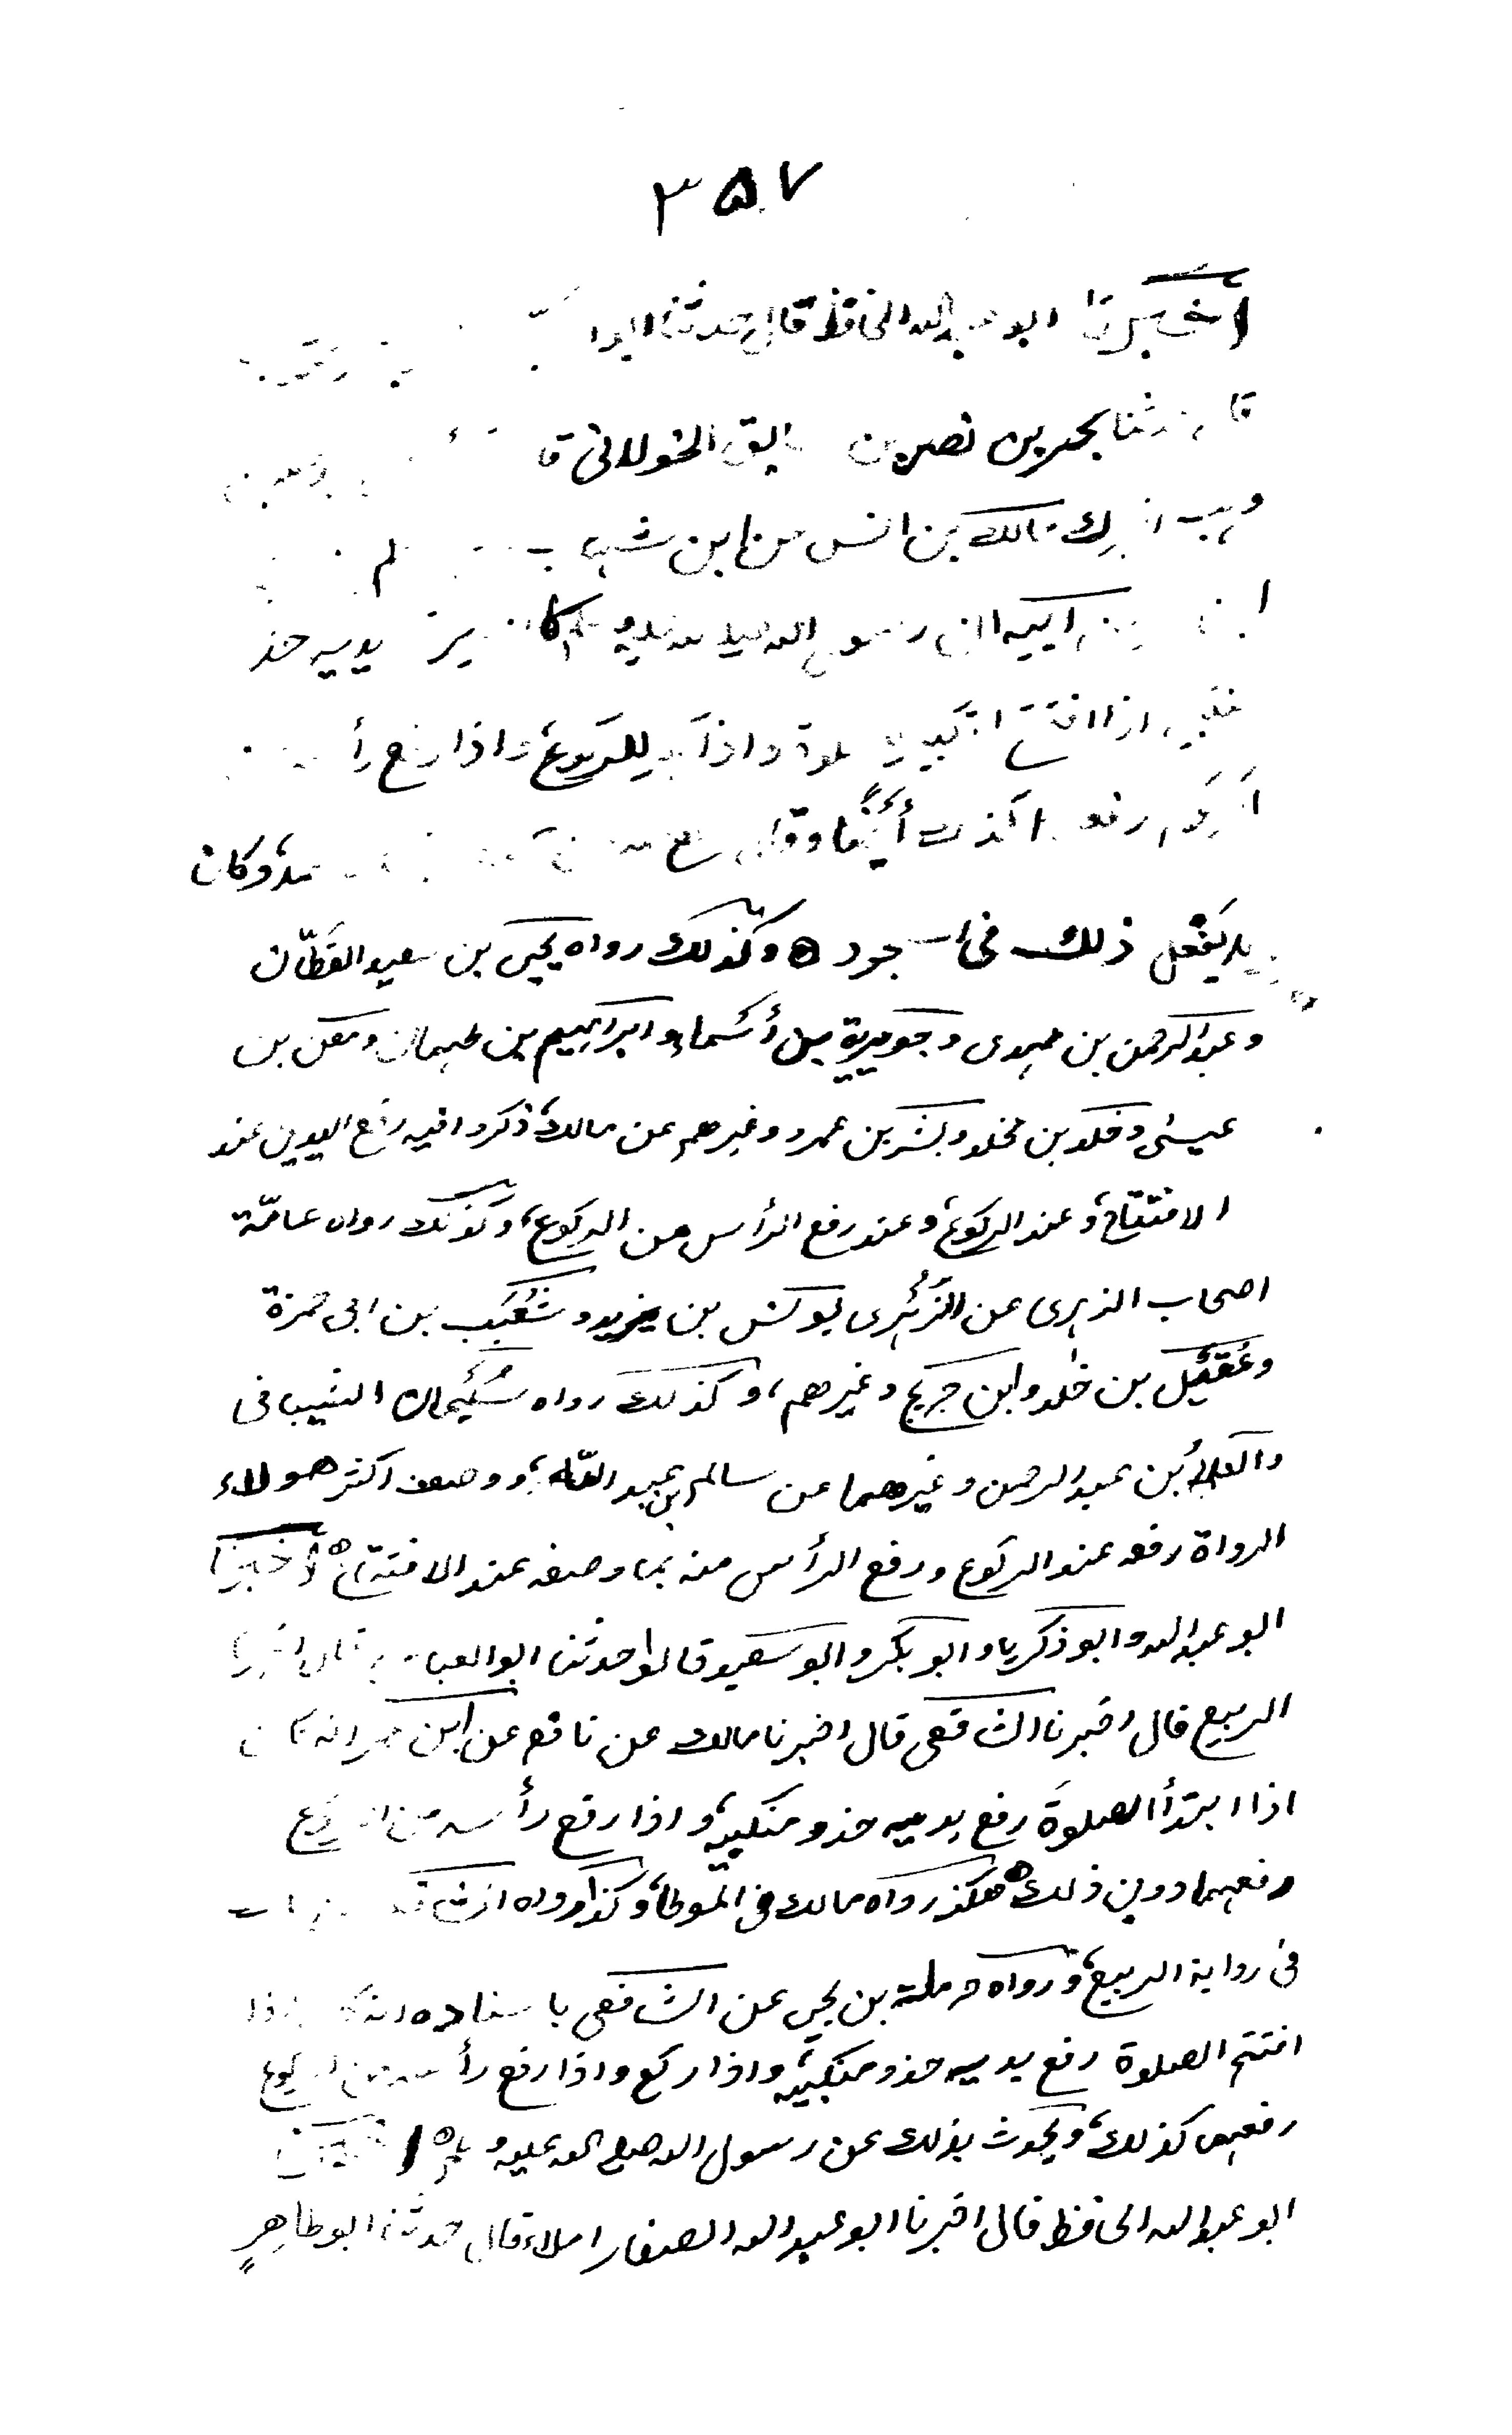 ٣٥٧
أخبرنا ابو عبد الله الحافظ قال حدثنا ابو
بحر بن نصر بن سابق الخولانى
وهب مالك بن انس عن ابن شهاب
ابيه ان رسول الله صلى الله عليه وسلم كان يديه حذو
اذا افتتح التكبير للصلوة واذا كبر للركوع، واذا رفع رأسه
كذلك أيضا وقال سمع الله وكان
لا يفعل ذلك فى السجود ه وكذلك رواه يحيى بن سعيد القطّان
وعبد الرحمن بن مهدى وجويرية بن أسماء وابراهيم بن طهمان ومعن بن
عيسى وخالد بن مخلد وبشر بن عمرو وغيرهم عن مالك، ذكروا فيه رفع اليدين عند
الافتتاح، وعند الركوع، وعند رفع الرأس من الركوع، وكذلك رواه عامّة
اصحاب الزهرى عن الزُّهْرى يونس بن يزيد وشُعَيْب بن ابى حمزة
وعُقَيْل بن خلد وابن جريج وغيرهم، وكذلك رواه سُلَيْمان الشيبانى
والعلاء بن عبد الرحمن وغيرهما عن سالم بن عبد اللّه، ووصف اكثر هولاء
الرواة رفعه عند الركوع ورفع الرأس منه بما وصفه عند الافتتاح ه أخبرنا
ابو عبد الله وابو زكريا وابو بكر وابو سعيد قالوا حدثنا ابو العباس قال اخبرنا
الربيع قال اخبرنا الشافعى قال اخبرنا مالك عن نافع عن ابن عمر انه كان
اذا ابتدأ الصلوة رفع يديه حذو منكبيه، واذا رفع رأسه من الركوع
رفعهما دون ذلك ه هكذا رواه مالك فى الموطأ، وكذا رواه الشافعى
فى رواية الربيع، ورواه حرملة بن يحيى عن الشافعى باسناده انه كان اذا
افتتح الصلوة رفع يديه حذو منكبيه، واذا ركع واذا رفع رأسه من الركوع
رفعهما كذلك، ويحدث بذلك عن رسول الله صلى الله عليه وسلم ه أخبرنا
ابو عبد الله الحافظ قال اخبرنا ابو عبد الله الصفار املاء قال حدثنا ابو طاهرٍ